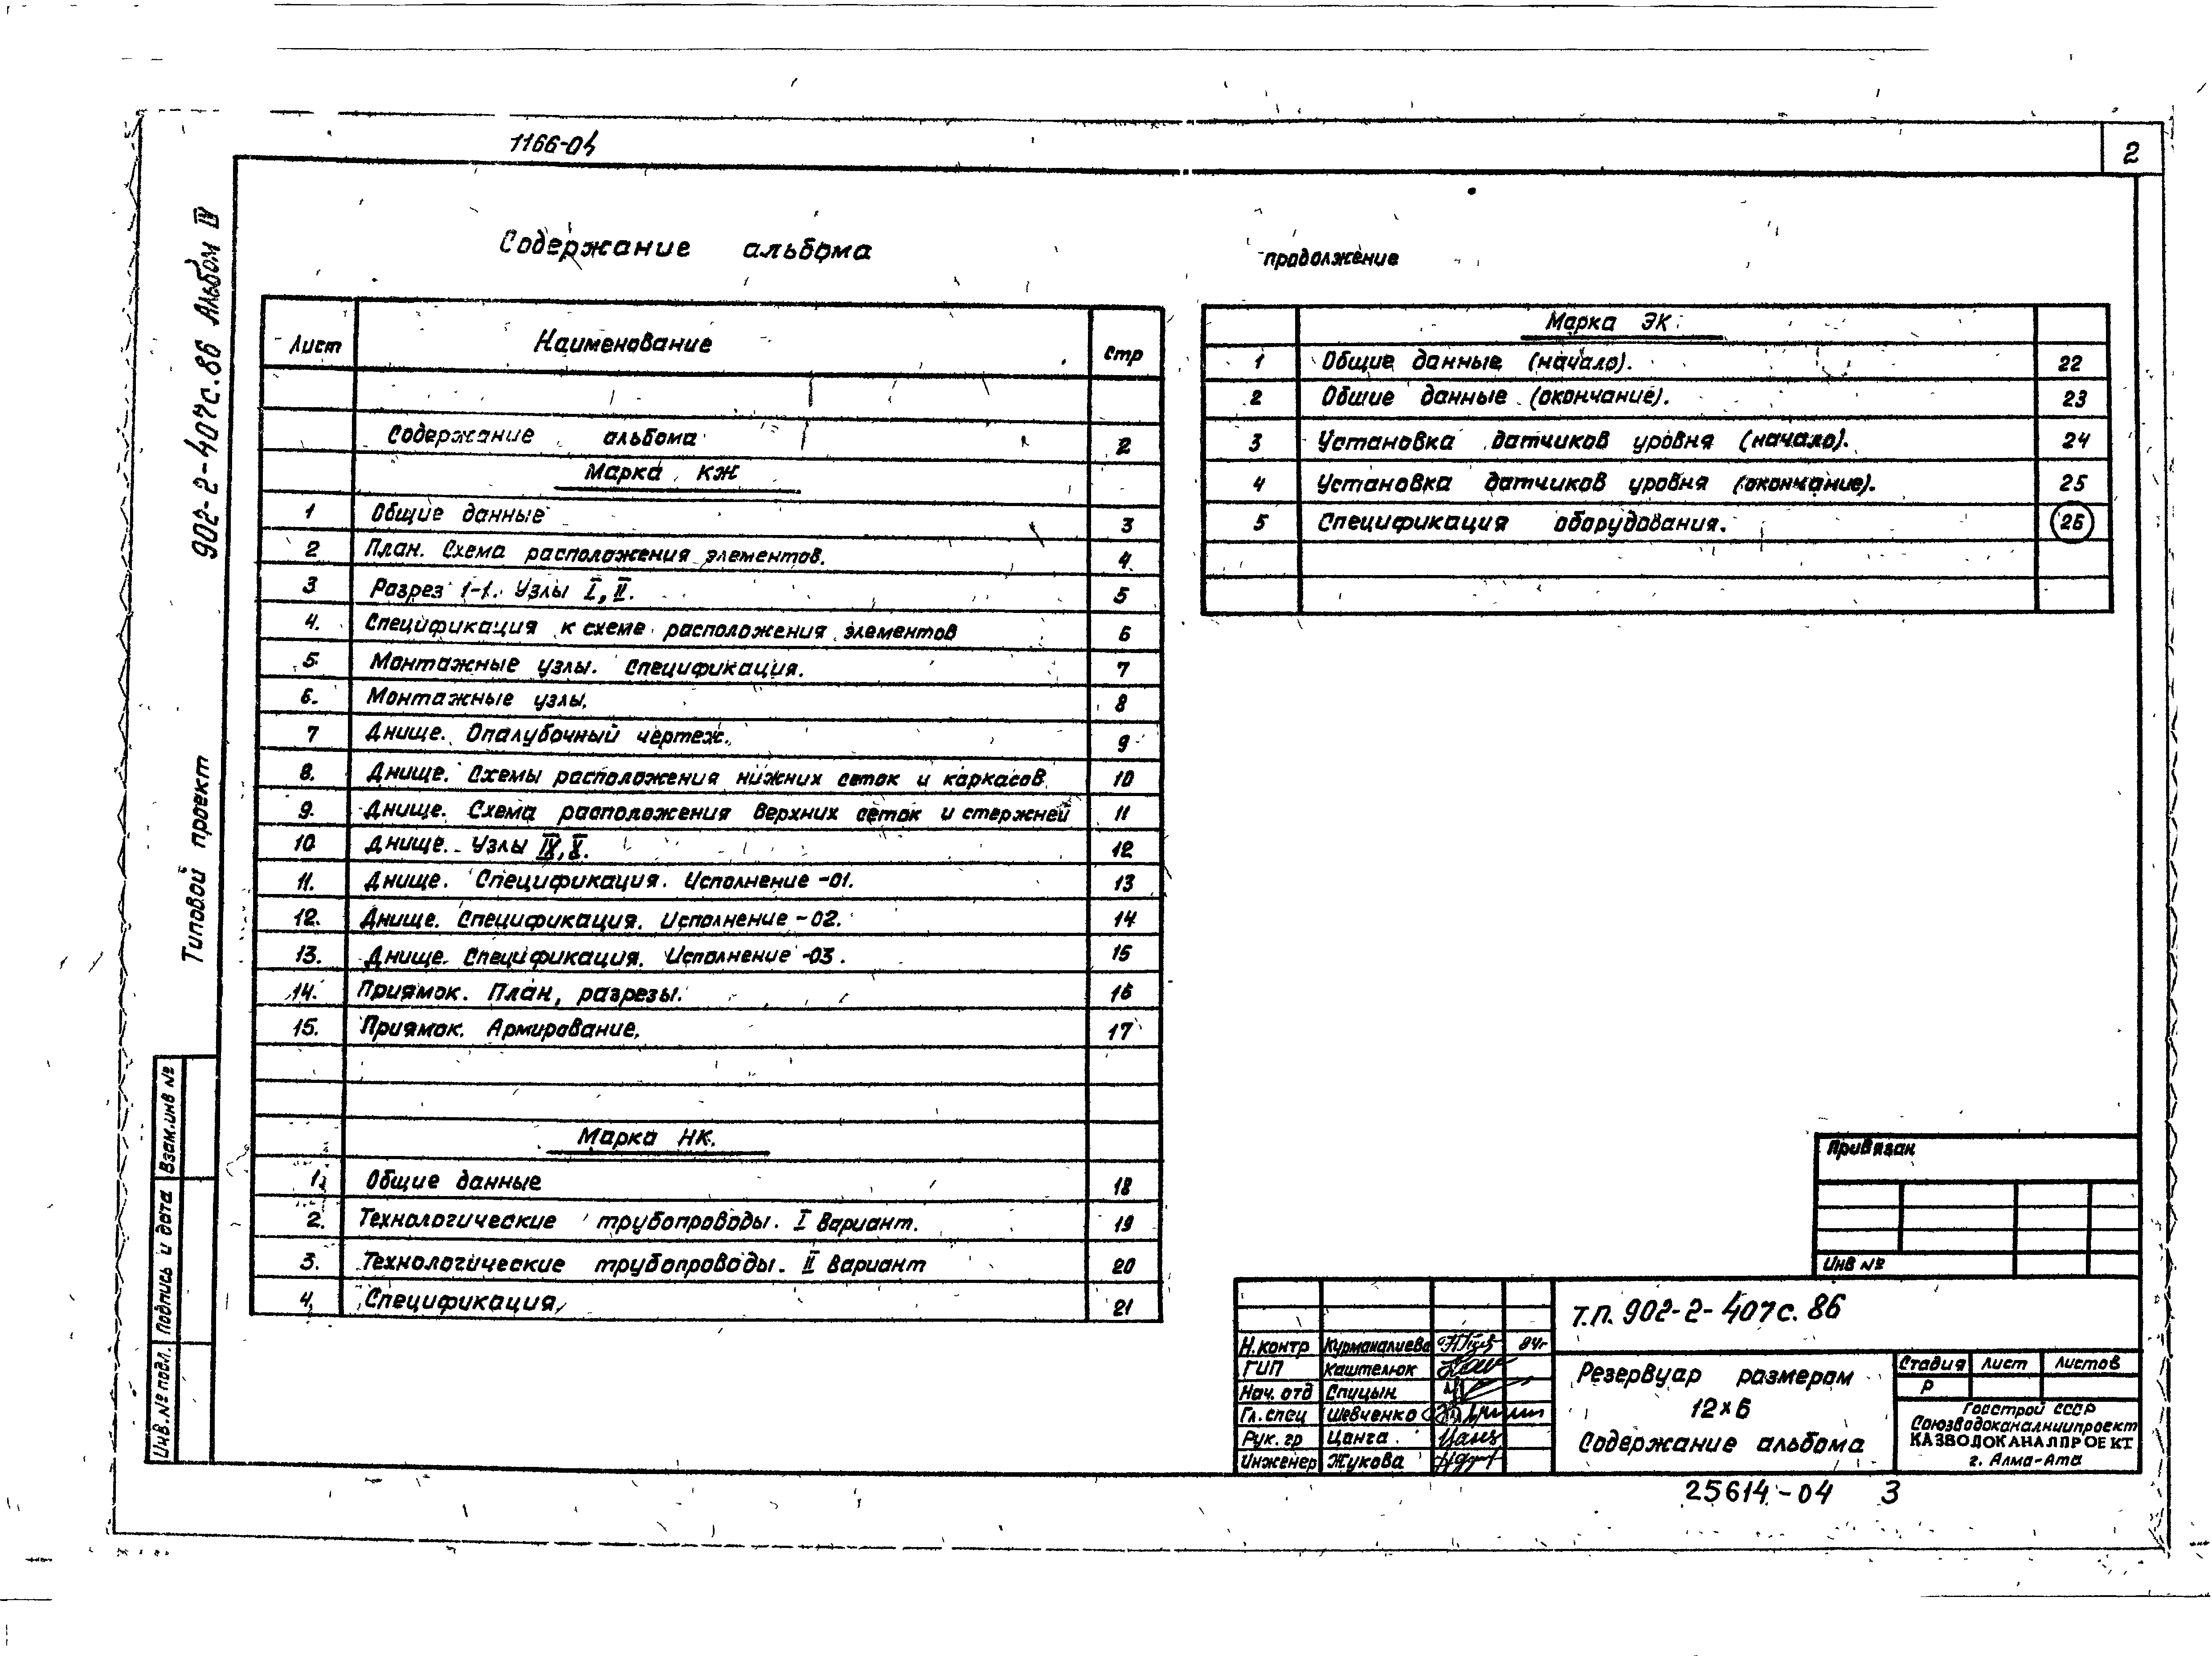 1166-04
2
902-2-407с.86 Альбом IV
Типовой проект
Содержание альбома
Лист Наименование Стр
Содержание альбома 2
Марка КЖ
1 Общие данные 3
2 План. Схема расположения элементов. 4
3 Разрез 1-1. Узлы I, II. 5
4. Спецификация к схеме расположения элементов 6
5. Монтажные узлы. Спецификация. 7
6. Монтажные узлы. 8
7 Днище. Опалубочный чертеж. 9
8. Днище. Схемы расположения нижних сеток и каркасов 10
9. Днище. Схема расположения верхних сеток и стержней 11
10 Днище. Узлы IV, V. 12
11. Днище. Спецификация. Исполнение -01. 13
12. Днище. Спецификация. Исполнение -02. 14
13. Днище. Спецификация. Исполнение -03. 15
14. Приямок. План, разрезы. 16
15. Приямок. Армирование. 17
Марка НК.
1. Общие данные 18
2. Технологические трубопроводы. I Вариант. 19
3. Технологические трубопроводы. II Вариант 20
4. Спецификация. 21
продолжение
Марка ЭК
1 Общие данные (начало). 22
2 Общие данные (окончание). 23
3 Установка датчиков уровня (начало). 24
4 Установка датчиков уровня (окончание). 25
5 Спецификация оборудования. 26
Взам.инв №
Подпись и дата
Инв.№ подл.
Привязан
Инв №
Т.П. 902-2-407с.86
Н.контр Курманалиева 84г
ГИП Каштелюк
Нач. отд Спицын
Гл. спец Шевченко
Рук. гр Цанга
Инженер Жукова
Резервуар размером
12×6
Содержание альбома
Стадия Лист Листов
Р
Госстрой СССР
Союзводоканалниипроект
КАЗВОДОКАНАЛПРОЕКТ
г. Алма-Ата
25614-04 3